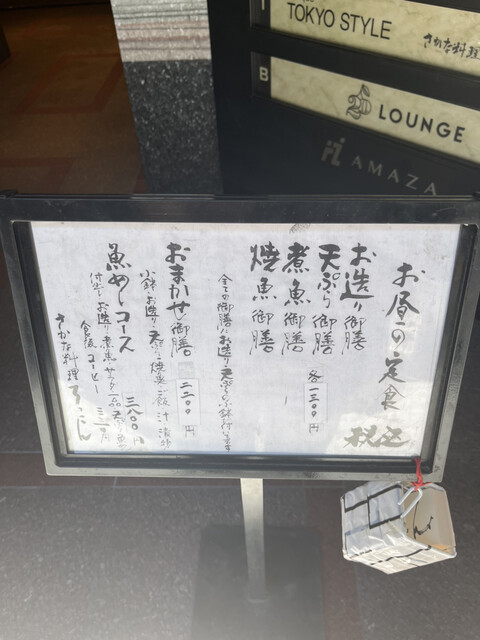 TOKYO STYLE
さかな料理
B
LOUNGE
AMAZA
お昼の定食
税込
お造り御膳
天ぷら御膳
煮魚御膳
焼魚御膳
各一三〇〇円
全ての御膳にお造り、天ぷらの小鉢が付いてます
おまかせ御膳
二二〇〇円
小鉢・お造り・天ぷら・焼魚・ご飯・汁・漬物
魚めしコース
三八〇〇円
さかな料理